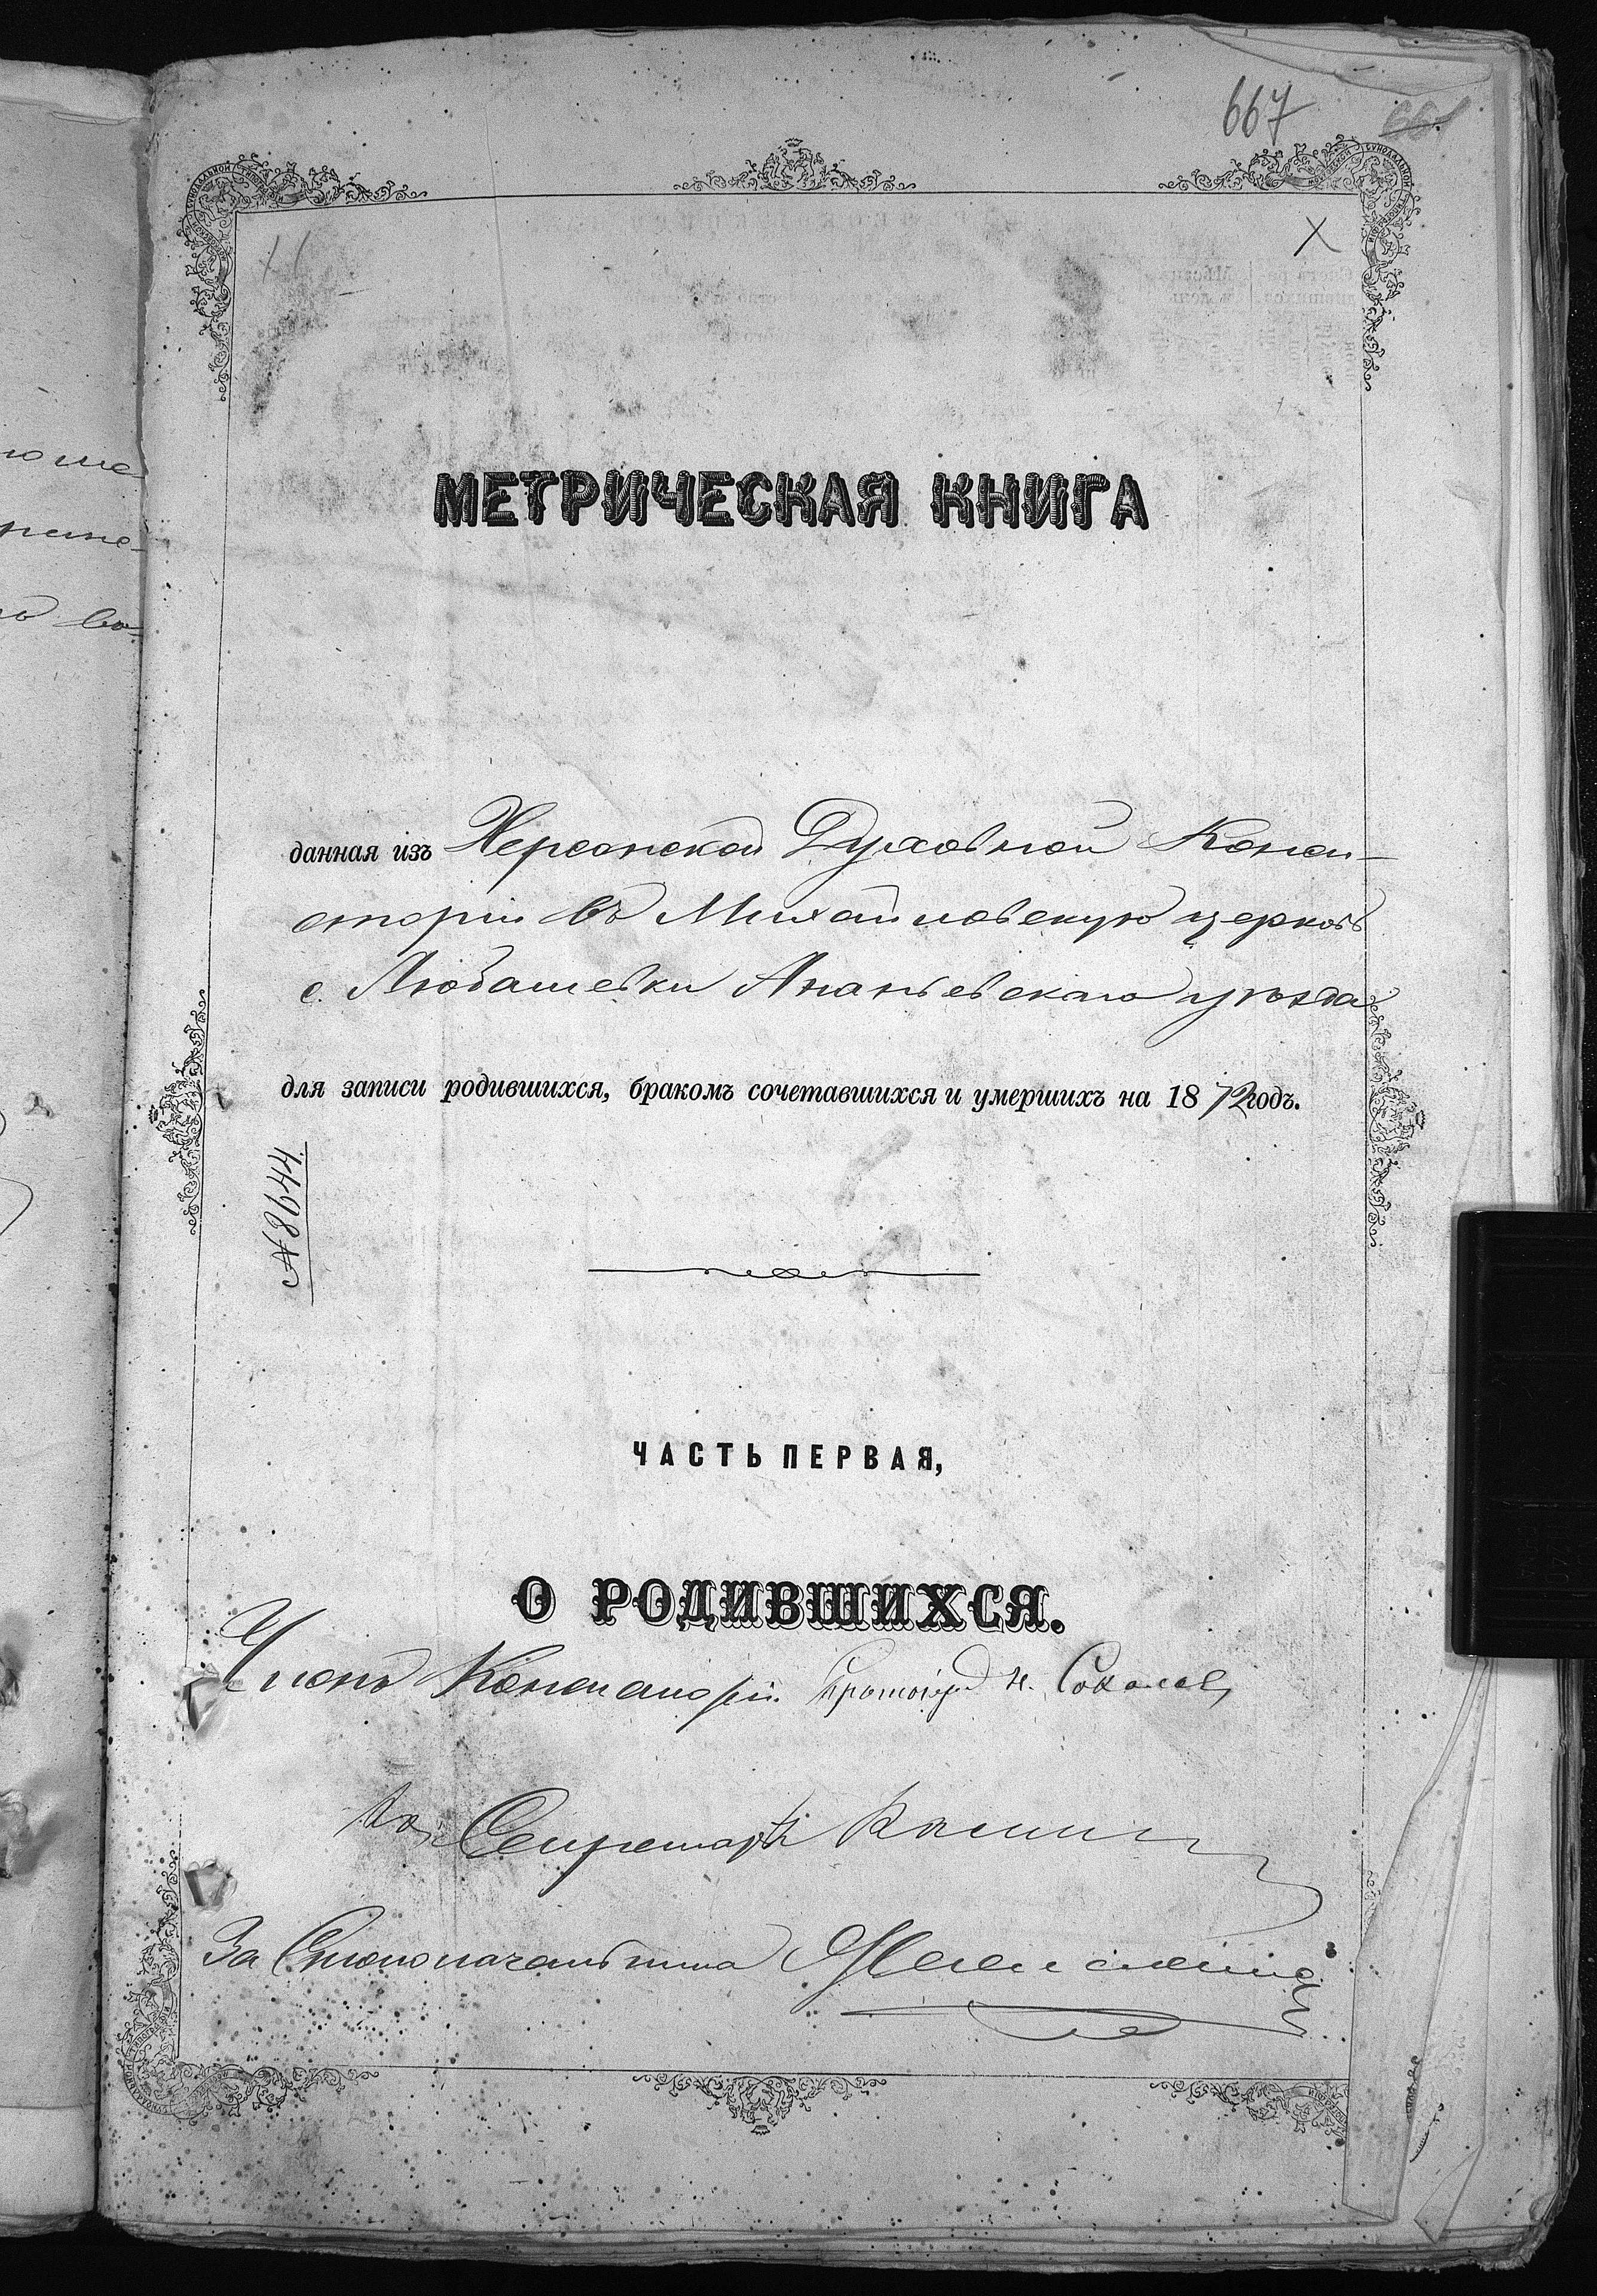 667
661
МЕТРИЧЕСКАЯ КНИГА
данная изъ Херсонской Духовной Конси-
сторіи въ Михайловскую церковь
с. Любашевки Ананьевскаго уѣзда
для записи родившихся, бракомъ сочетавшихся и умершихъ на 1872 годъ.
№ 8644.
ЧАСТЬ ПЕРВАЯ,
О РОДИВШИХСЯ.
Членъ Консисторіи Протоіерей Н. Соколов
Секретарь
За Столоначальника